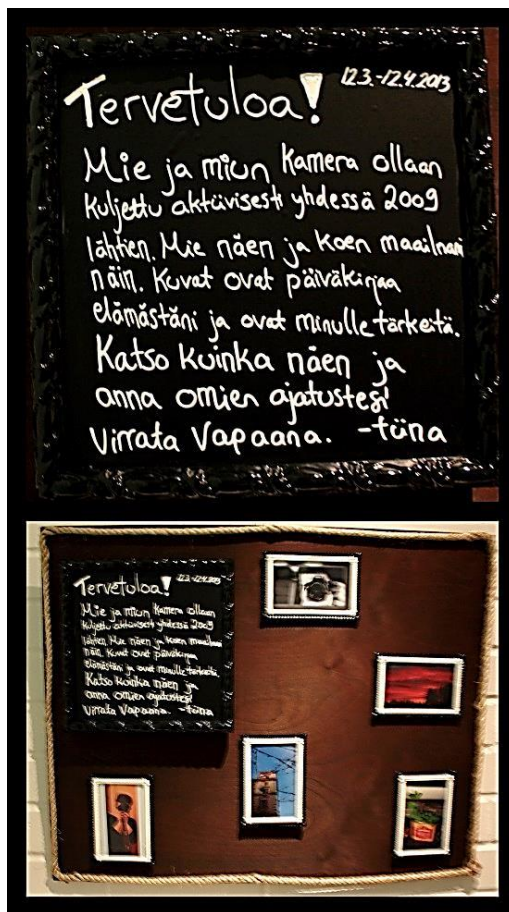 Tervetuloa! 12.3.-12.4.2013
Mie ja miun kamera ollaan
kuljettu aktiivisesti yhdessä 2009
lähtien. Mie näen ja koen maailmani
näin. Kuvat ovat päiväkirjaa
elämästäni ja ovat minulle tärkeitä.
Katso kuinka näen ja
anna omien ajatustesi
virrata vapaana. -tiina
Tervetuloa! 12.3.-12.4.2013
Mie ja miun kamera ollaan
kuljettu aktiivisesti yhdessä 2009
lähtien. Mie näen ja koen maailmani
näin. Kuvat ovat päiväkirjaa
elämästäni ja ovat minulle tärkeitä.
Katso kuinka näen ja
anna omien ajatustesi
virrata vapaana. -tiina